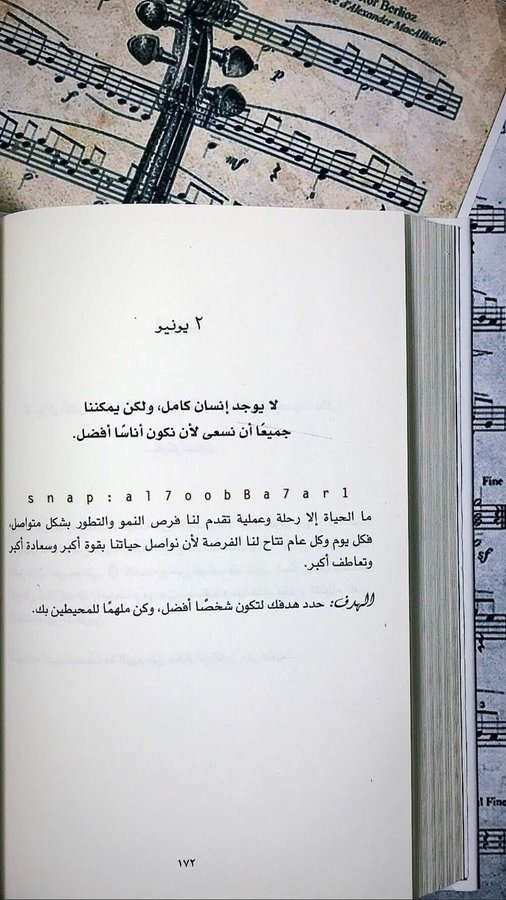 of Berlioz
d'Alexander MacAllister
٢ يونيو
لا يوجد إنسان كامل، ولكن يمكننا
جميعًا أن نسعى لأن نكون أناسًا أفضل.
snap:al7oobBa7arl
ما الحياة إلا رحلة وعملية تقدم لنا فرص النمو والتطور بشكل متواصل،
فكل يوم وكل عام تتاح لنا الفرصة لأن نواصل حياتنا بقوة أكبر وسعادة أكبر
وتعاطف أكبر.
الهدف: حدد هدفك لتكون شخصًا أفضل، وكن ملهمًا للمحيطين بك.
١٧٢
Fine
al Fine